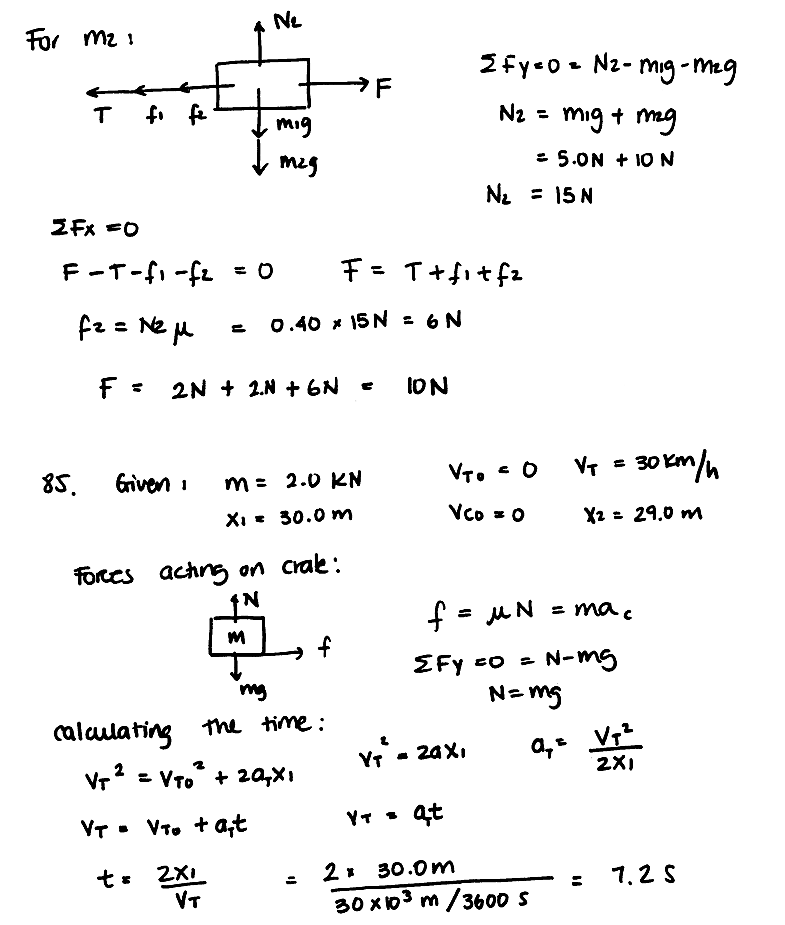 For m2 :
N2
F
T f1 f2
m1g
m2g
ΣFy=0 = N2-m1g-m2g
N2 = m1g + m2g
= 5.0N + 10 N
N2 = 15N
ΣFx =0
F -T-f1 -f2 = 0 F = T+f1+f2
f2 = N2 μ = 0.40 × 15N = 6N
F = 2N + 2N + 6N = 10N
85. Given : m = 2.0 KN VTo = 0 VT = 30 Km/h
X1 = 30.0 m VCO = 0 X2 = 29.0 m
Forces acting on crate:
N
m
f
mg
f = μN = mac
ΣFy =0 = N-mg
N=mg
calculating the time:
VT² = VTo² + 2aTX1 VT² = 2aX1 aT = VT²/2X1
VT = VTo + aTt VT = aTt
t = 2X1/VT = 2 × 30.0m/30 ×10³ m/3600 s = 7.2 S